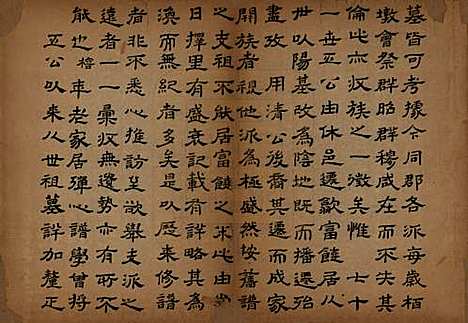 墓皆可考據今同郡各派每歲相
墩會祭群昭群穆咸在而不失其
倫此亦收族之一徵矣惟 七十
一世五公由休邑遷歙富饒公後
世以陽基改為陰地既而播遷殆
盡改 用清公後裔其遷而成家
開族者視他派為極盛然按舊譜
之支祖不能居富饒之本此由昔
日擇里有盛衰記載有詳略其為
渙而無紀者多矣是以歷來修譜
者非不悉心推訪至欲舉支派之
遠者一一彙收無遺勢亦有所不
能也榰年老家居殫心譜學曾將
五公以來八世祖墓詳加釐正